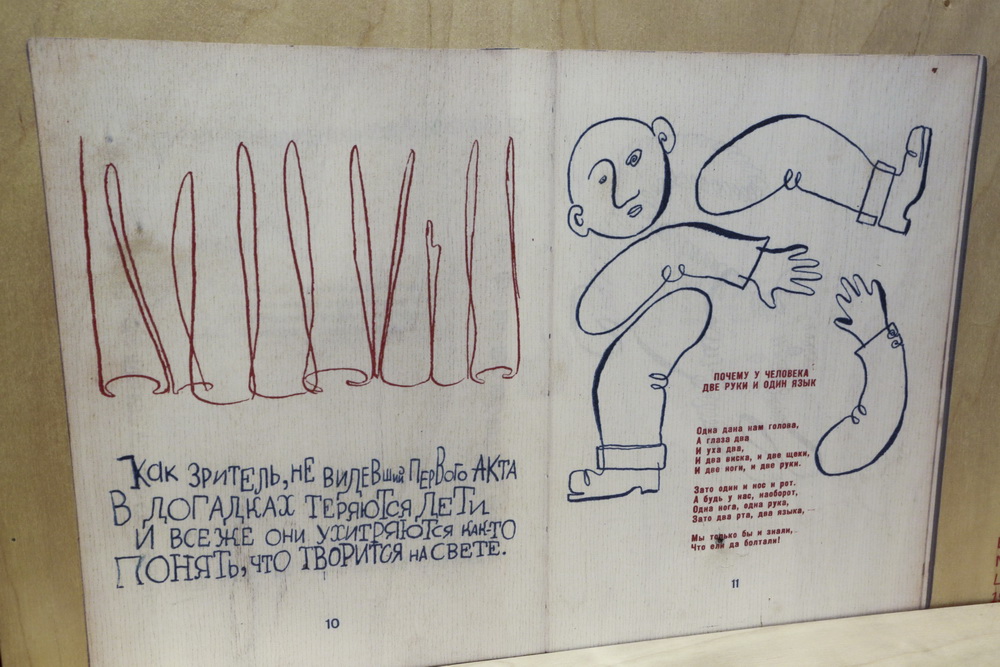 Как зритель, не видевший первого акта
В догадках теряются дети.
И все же они ухитряются как-то
Понять, что творится на свете.
10
ПОЧЕМУ У ЧЕЛОВЕКА
ДВЕ РУКИ И ОДИН ЯЗЫК
Одна дана нам голова,
А глаза два
И уха два,
И два виска, и две щеки,
И две ноги, и две руки.
Зато один и нос и рот.
А будь у нас, наоборот,
Одна нога, одна рука,
Зато два рта, два языка,
Мы только бы и знали,
Что ели да болтали!
11